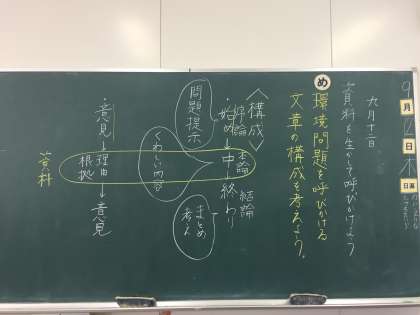 9月12日 木
日直
九月十二日
資料を生かして呼びかけよう
め 環境問題を呼びかける
文章の構成を考えよう。
〈構成〉
序論 本論 結論
・始め→中→終わり
問題提示
くわしい内容
まとめ
考え
・意見→理由→意見
根拠
資料